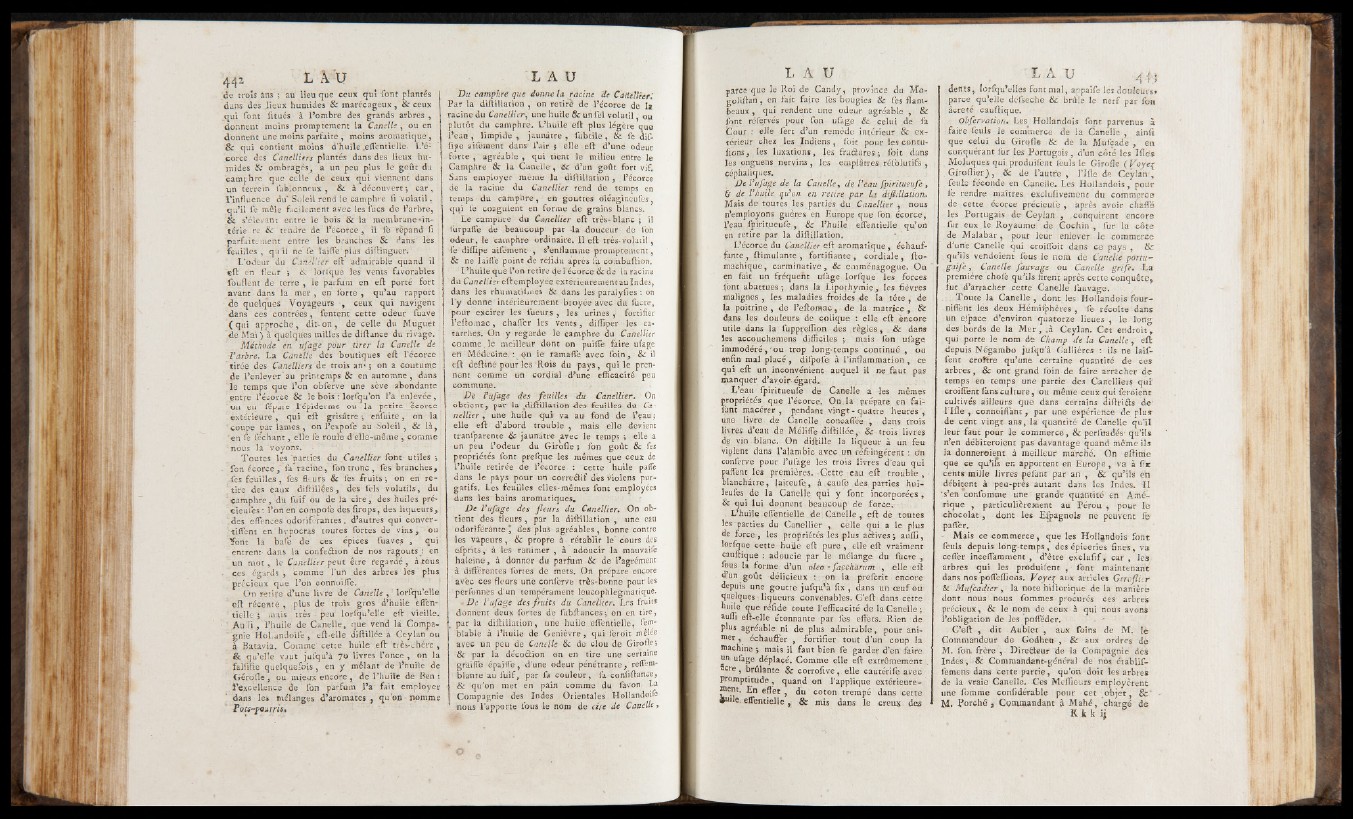 442 L A U
de trois ans : au lieu que ceux qui ſont plantés
dans des lieux humides & marécageux, & ceux
qui ſont ſitués à l'ombre des grands arbres,
donnent moins promptement la Canelle, ou en
donnent une moins parfaite, moins aromatique,
& qui contient moins d'huile eſſentielle. L'é-
corce des Canelliers plantés dans des lieux hu-
mides & ombragés, a un peu plus le goût du
camphre que celle de ceux qui viennent dans
un terrein ſablonneux, & à découvert; car,
l'influence du Soleil rend le camphre ſi volatil,
qu'il ſe mêle facilement avec les ſucs de l'arbre,
& s'élevant entre le bois & la membrane in-
térieure & tendre de l'écorce, il ſe répand ſi
parfaitement entre les branches & dans les
feuilles, qu'il ne ſe laiſſe plus diſtinguer.
L'odeur du Canellier eſt admirable quand il
eſt en fleur ; & lorſque les vents favorables
ſoufflent de terre, le parfum en eſt porté fort
avant dans la mer, en ſorte, qu'au rapport
de quelques Voyageurs, ceux qui navigent
dans ces contrées, ſentent cette odeur ſuave
(qui approche, dit-on, de celle du Muguet
de Mai) à quelques milles de diſtance du rivage.
Méthode en uſage pour tirer la Canelle de
l'arbre. La Canelle des boutiques eſt l'écorce
tirée des Canelliers de trois ans; on a coutume
de l'enlever au printemps & en automne, dans
le temps que l'on obſerve une sève abondante
entre l'écorce & le bois : lorſqu'on l'a enlevée,
on en ſépare l'épiderme ou la petite écorce
extérieure, qui eſt griſâtre; enſuite, on la
coupe par lames, on l'expoſe au Soleil, & là,
en ſe ſéchant, elle ſe roule d'elle-même, comme
nous la voyons.
Toutes les parties du Canellier ſont utiles ;
ſon écorce, ſa racine, ſon tronc, ſes branches,
ſes feuilles, ſes fleurs & ſes fruits; on en re-
tire des eaux diſtillées, des ſels volatils, du
camphre, du ſuif ou de la cire, des huiles pré-
cieuſes : l'on en compoſe des ſirops, des liqueurs,
des eſſences odoriférantes, d'autres qui conver-
tiſſent en hypocras toutes ſortes de vins, ou
font la baſe de ces épices ſuaves, qui
entrent dans la confection de nos ragoûts; en
un mot, le Canellier peut être regardé, à tous
ces égards, comme l'un des arbres les plus
précieux que l'on connoiſſe.
On retire d'une livre de Canelle, lorſqu'elle
eſt récente, plus de trois gros d'huile eſſen-
tielle ; mais très peu lorſqu'elle eſt vieille.
Auſſi, l'huile de Canelle, que vend la Compa-
gnie Hollandoiſe, eſt-elle diſtillée à Ceylan ou
à Batavia. Comme cette huile eſt très-chère,
& qu'elle vaut juſqu'à 70 livres l'once, on la
falſifie quelquefois, en y mêlant de l'huile de
Gérofle, ou mieux encore, de l'huile de Ben :
l'excellence de ſon parfum l'a fait employer
dans les mélanges d'aromates, qu'on nomme
Pots-pourris.
L A U
Du camphre que donne la racine de Canellier.
Par la diſtillation, on retire de l'écorce de la
racine du Canellier, une huile & un ſel volatil, ou
plutôt du camphre. L'huile eſt plus légère que
l'eau, limpide, jaunâtre, ſubtile, & ſe diſ-
ſipe aiſément dans l'air ; elle eſt d'une odeur
forte, agréable, qui tient le milieu entre le
Camphre & la Canelle, & d'un goût fort vif.
Sans employer même la diſtillation, l'écorce
de la racine du Canellier rend de temps en
temps du camphre, en gouttes oléagineuſes,
qui ſe coagulent en forme de grains blancs.
Le camphre du Canellier eſt très-blanc ; il
ſurpaſſe de beaucoup par la douceur de ſon
odeur, le camphre ordinaire. Il eſt très-volatil,
ſe diſſipe aiſément, s'enflamme promptement,
& ne laiſſe point de réſidu après ſa combuſtion.
L'huile que l'on retire de l'écorce & de la racine
du Canellier eſt employée extérieurement au Indes,
dans les rhumatiſmes & dans les paralyſies : on
l'y donne intérieurement broyée avec du ſucre,
pour exciter les ſueurs, les urines, fortifier
l'eſtomac, chaſſer les vents, diſſiper les ca-
tarrhes. On y regarde le camphre du Canellier
comme le meilleur dont on puiſſe faire uſage
en Médecine : on le ramaſſe avec ſoin, & il
eſt deſtiné pour les Rois du pays, qui le pren-
nent comme un cordial d'une efficacité peu
commune.
De l'uſage des feuilles du Canellier. On
obtient, par la diſtillation des feuilles du Ca-
nellier, une huile qui va au fond de l'eau;
elle eſt d'abord trouble, mais elle devient
tranſparente & jaunâtre avec le temps ; elle a
un peu l'odeur du Girofle ; ſon goût & ſes
propriétés ſont preſque les mêmes que ceux de
l'huile retirée de l'écorce : cette huile paſſe
dans le pays pour un correctif des violens pur-
gatifs. Les feuilles elles-mêmes ſont employées
dans les bains aromatiques.
De l'uſage des fleurs du Canellier. On ob-
tient des fleurs, par la diſtillation, une eau
odoriférante, des plus agréables, bonne contre
les vapeurs, & propre à rétablir le cours des
eſprits, à les ranimer, à adoucir la mauvaiſe
haleine, à donner du parfum & de l'agrément
à différentes ſortes de mets. On prépare encore
avec ces fleurs une conſerve très-bonne pour les
perſonnes d'un tempérament leucophlegmatique.
De l'uſage des fruits du Canellier. Les fruits
donnent deux ſortes de ſubſtances; on en tire,
par la diſtillation, une huile eſſentielle, ſem-
blable à l'huile de Genièvre, qui ſeroit mêlée
avec un peu de Canelle & de clou de Girofle;
& par la décoction on en tire une certaine
graiſſe épaiſſe, d'une odeur pénétrante, reſſem-
blante au ſuif, par ſa couleur, ſa conſiſtance,
& qu'on met en pain comme du ſavon. La
Compagnie des Indes Orientales Hollandoiſe
nous l'apporte ſous le nom de cire de Canelle,
L A U
parce que le Roi de Candy, province du Mo-
goliſtan, en fait faire ſes bougies & ſes flam-
beaux, qui rendent une odeur agréable, &
ſont réſervés pour ſon uſage & celui de ſa
Cour : elle ſert d'un remède intérieur & ex-
térieur chez les Indiens, ſoit pour les contu-
ſions, les luxations, les fractures; ſoit dans
les onguens nervins, les emplâtres réſolutifs,
céphaliques.
De l'uſage de la Canelle, de l'eau ſpiritueuſe,
& de l'huile qu'on en retire par la diſtillation.
Mais de toutes les parties du Canellier, nous
n'employons guères en Europe que ſon écorce,
l'eau ſpiritueuſe, & l'huile eſſentielle qu'on
en retire par la diſtillation.
L'écorce du Canellier eſt aromatique, échauf-
fante, ſtimulante, fortifiante, cordiale, ſto-
machique, carminative, & emménagogue. On
en fait un fréquent uſage lorſque les forces
ſont abattues; dans la Lipothymie, les fièvres
malignes, les maladies froides de la tête, de
la poitrine, de l'eſtomac, de la matrice, &
dans les douleurs de colique : elle eſt encore
utile dans la ſuppreſſion des règles, & dans
les accouchemens difficiles ; mais ſon uſage
immodéré, ou trop long-temps continué, ou
enfin mal placé, diſpoſe à l'inflammation, ce
qui eſt un inconvénient auquel il ne faut pas
manquer d'avoir égard.
L'eau ſpiritueuſe de Canelle a les mêmes
propriétés que l'écorce. On la prépare en fai-
ſant macérer, pendant vingt-quatre heures,
une livre de Canelle concaſſée, dans trois
livres d'eau de Méliſſe diſtillée, & trois livres
de vin blanc. On diſtille la liqueur à un feu
violent dans l'alambic avec un réfrigérent : on
conſerve pour l'uſage les trois livres d'eau qui
paſſent les premières. Cette eau eſt trouble,
blanchâtre, laiteuſe, à cauſe des parties hui-
leuſes de la Canelle qui y ſont incorporées,
& qui lui donnent beaucoup de force.
L'huile eſſentielle de Canelle, eſt de toutes
les parties du Canellier, celle qui a le plus
de force, les propriétés les plus actives; auſſi,
lorſque cette huile eſt pure, elle eſt vraiment
cauſtique : adoucie par le mélange du ſucre,
ſous la forme d'un oleo-ſaccharum, elle eſt
d'un goût délicieux : on la preſcrit encore
depuis une goutte juſqu'à ſix, dans un œuf ou
quelques liqueurs convenables. C'eſt dans cette
huile que réſide toute l'efficacité de la Canelle;
auſſi eſt-elle étonnante par ſes effets. Rien de
plus agréable ni de plus admirable, pour ani-
mer, échauffer, fortifier tout d'un coup la
machine; mais il faut bien ſe garder d'en faire
un uſage déplacé. Comme elle eſt extrêmement
âcre, brûlante & corroſive, elle cautériſe avec
promptitude, quand on l'applique extérieure-
ment. En effet, du coton trempé dans cette
huile eſſentielle, & mis dans le creux des
L A U 443
dents, lorſqu'elles font mal, appaiſe les douleurs,
parce qu'elle deſſeche & brûle le nerf par ſon
âcreté cauſtique.
Obſervation. Les Hollandois ſont parvenus à
faire ſeuls le commerce de la Canelle, ainſi
que celui du Girofle & de la Muſcade, en
conquérant ſur les Portugois, d'un côté les Iſles
Moluques qui produiſent ſeuls le Girofle (Voyez
Giroflier), & de l'autre, l'Iſle de Ceylan,
ſeule féconde en Canelle. Les Hollandois, pour
ſe rendre maîtres excluſivement du commerce
de cette écorce précieuſe, après avoir chaſſé
les Portugais de Ceylan, conquirent encore
ſur eux le Royaume de Cochin, ſur la côte
de Malabar, pour leur enlever le commerce
d'une Canelle qui croiſſoit dans ce pays, &
qu'ils vendoient ſous le nom de Canelle portu-
gaiſe, Canelle ſauvage ou Canelle griſe. La
première choſe qu'ils firent après cette conquête,
fut d'arracher cette Canelle ſauvage.
Toute la Canelle, dont les Hollandois four-
niſſent les deux Hémiſphères, ſe récolte dans
un eſpace d'environ quatorze lieues, le long
des bords de la Mer, à Ceylan. Cet endroit,
qui porte le nom de Champ de la Canelle, eſt
depuis Négambo juſqu'à Gallières : ils ne laiſ-
ſent croître qu'une certaine quantité de ces
arbres, & ont grand ſoin de faire arracher de
temps en temps une partie des Canelliers qui
croiſſent ſans culture, ou même ceux qui ſeroient
cultivés ailleurs que dans certains diſtricts de
l'Iſle, connoiſſant, par une expérience de plus
de cent vingt ans, la quantité de Canelle qu'il
leur faut pour le commerce, & perſuadés qu'ils
n'en débiteroient pas davantage quand même ils
la donneroient à meilleur marché. On eſtime
que ce qu'ils en apportent en Europe, va à ſix
cents mille livres peſant par an, & qu'ils en
débitent à peu-près autant dans les Indes. Il
s'en conſomme une grande quantité en Amé-
rique, particulièrement au Pérou, pour le
chocolat, dont les Eſpagnols ne peuvent ſe
paſſer.
Mais ce commerce, que les Hollandois font
ſeuls depuis long-temps, des épiceries fines, va
ceſſer inceſſamment, d'être excluſif, car, les
arbres qui les produiſent, ſont maintenant
dans nos poſſeſſions. Voyez aux articles Giroflier
& Muſcadier, la note hiſtorique de la manière
dont nous nous ſommes procurés ces arbres
précieux, & le nom de ceux à qui nous avons
l'obligation de les poſſéder.
C'eſt, dit Aublet, aux ſoins de M. le
Commandeur de Godheu, & aux ordres de
M. ſon frère, Directeur de la Compagnie des
Indes, & Commandant-général de nos établiſ-
ſemens dans cette partie, qu'on doit les arbres
de la vraie Canelle. Ces Meſſieurs employèrent
une ſomme conſidérable pour cet objet, &
M. Porché, Commandant à Mahé, chargé de
K k k ij